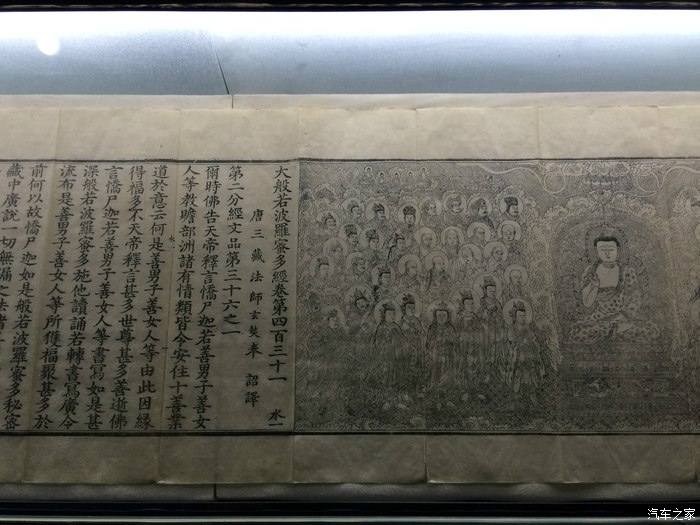 大般若波羅蜜多經卷第四百三十一 水一
唐三藏法師玄奘奉 詔譯
第二分經文品第三十六之一
爾時佛告天帝釋言憍尸迦若善男子善女
人等教贍部洲諸有情類皆令安住十善業
水一
道於意云何是善男子善女人等由此因緣
得福多不天帝釋言甚多世尊甚多善逝佛
言憍尸迦若善男子善女人等書寫如是甚
深般若波羅蜜多施他讀誦若轉書寫廣令
流布是善男子善女人等所獲福聚甚多於
前何以故憍尸迦如是般若波羅蜜多祕密
藏中廣說一切無漏之法
汽车之家